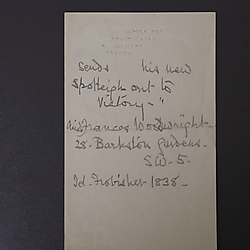 sends his new
Spotleigh ont to
Victory - "
Frances Woodwright -
28. Barkston Gardens.
S.W. 5.
Frobisher 1838 -